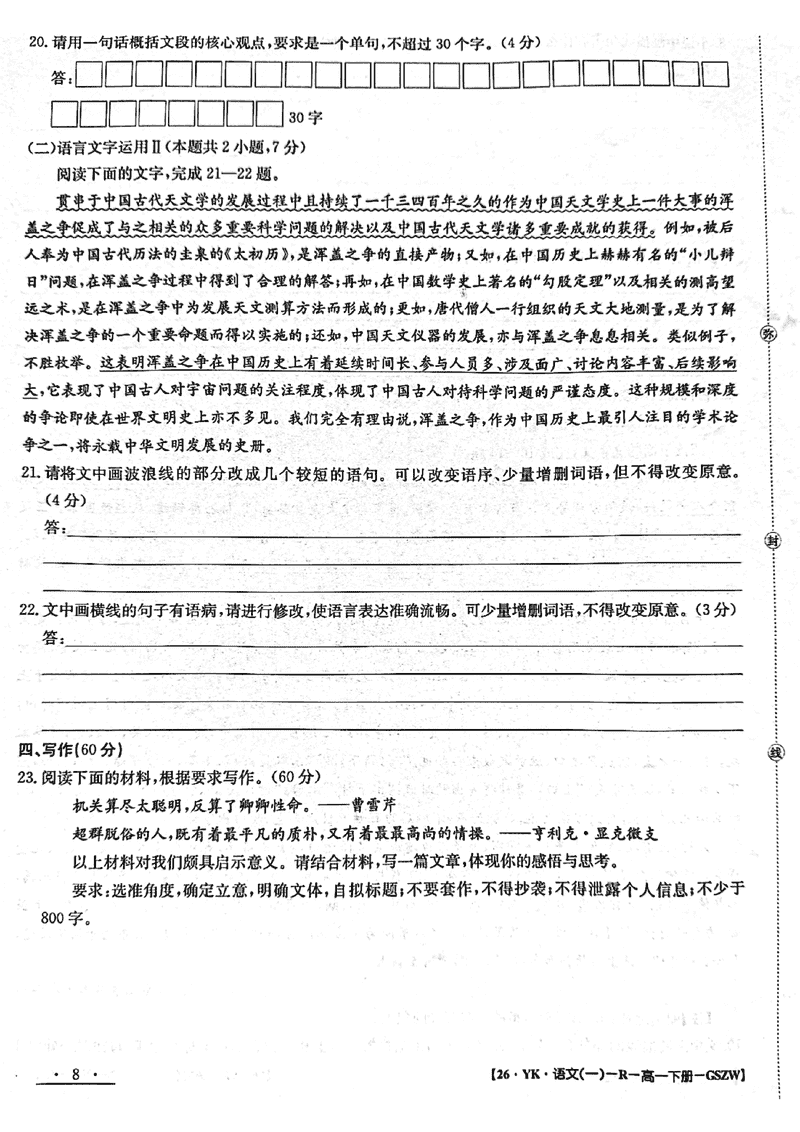 20. 请用一句话概括文段的核心观点,要求是一个单句,不超过 30 个字。(4 分)
答:
30 字
(二)语言文字运用Ⅱ(本题共 2 小题,7 分)
阅读下面的文字,完成 21—22 题。
贯串于中国古代天文学的发展过程中且持续了一千三四百年之久的作为中国天文学史上一件大事的浑
盖之争促成了与之相关的众多重要科学问题的解决以及中国古代天文学诸多重要成就的获得。例如,被后
人奉为中国古代历法的圭臬的《太初历》,是浑盖之争的直接产物;又如,在中国历史上赫赫有名的“小儿辩
日”问题,在浑盖之争过程中得到了合理的解答;再如,在中国数学史上著名的“勾股定理”以及相关的测高望
远之术,是在浑盖之争中为发展天文测算方法而形成的;更如,唐代僧人一行组织的天文大地测量,是为了解
决浑盖之争的一个重要命题而得以实施的;还如,中国天文仪器的发展,亦与浑盖之争息息相关。类似例子,
不胜枚举。这表明浑盖之争在中国历史上有着延续时间长、参与人员多、涉及面广、讨论内容丰富、后续影响
大,它表现了中国古人对宇宙问题的关注程度,体现了中国古人对待科学问题的严谨态度。这种规模和深度
的争论即使在世界文明史上亦不多见。我们完全有理由说,浑盖之争,作为中国历史上最引人注目的学术论
争之一,将永载中华文明发展的史册。
21. 请将文中画波浪线的部分改成几个较短的语句。可以改变语序、少量增删词语,但不得改变原意。
(4 分)
答:
22. 文中画横线的句子有语病,请进行修改,使语言表达准确流畅。可少量增删词语,不得改变原意。(3 分)
答:
四、写作(60 分)
23. 阅读下面的材料,根据要求写作。(60 分)
机关算尽太聪明,反算了卿卿性命。——曹雪芹
超群脱俗的人,既有着最平凡的质朴,又有着最最高尚的情操。——亨利克·显克微支
以上材料对我们颇具启示意义。请结合材料,写一篇文章,体现你的感悟与思考。
要求:选准角度,确定立意,明确文体,自拟标题;不要套作,不得抄袭;不得泄露个人信息;不少于
800 字。
· 8 ·
【26·YK·语文(一)-R-高一下册-GSZW】
弥
封
线